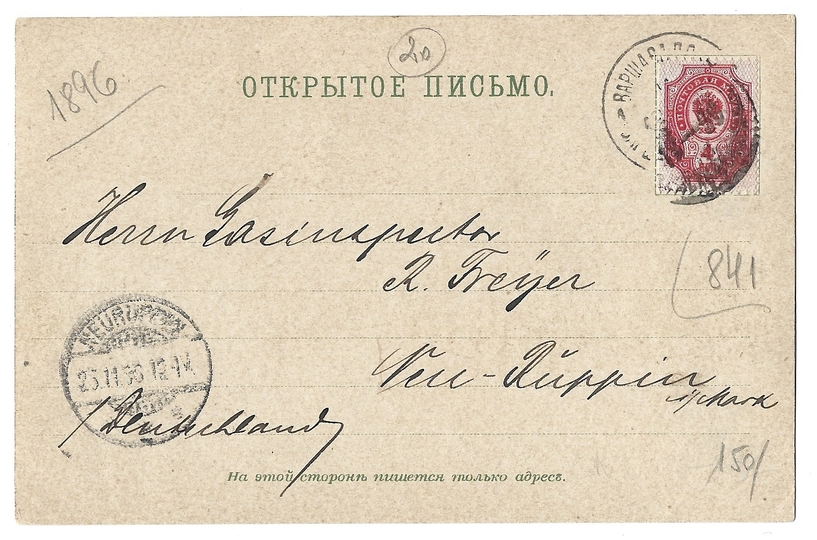 20
1896
ОТКРЫТОЕ ПИСЬМО.
ВАРШАВА
ПОЧТОВАЯ МАРКА
4
Herrn Gasinspector
R. Freyer
841
NEURUPPIN
12-1N
Neu-Ruppin
i/Mark
/Deutschland/
150/
На этой сторонѣ пишется только адресъ.